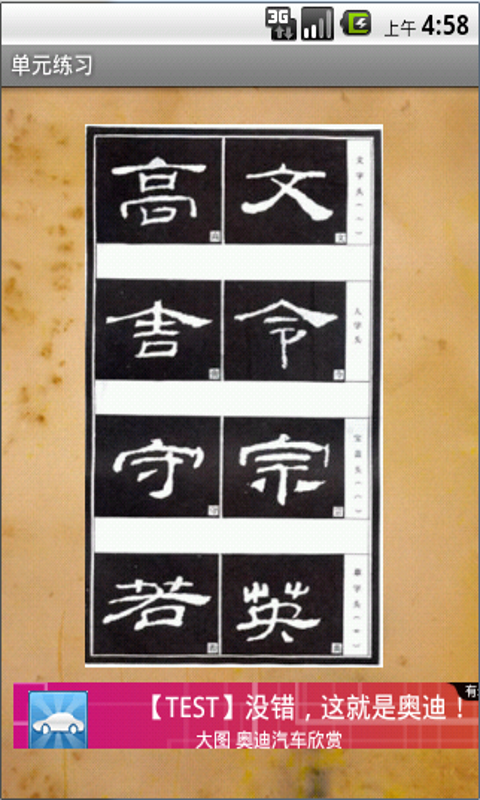 3G 上午 4:58
单元练习
文 高
文字头(亠)
令 舍
人字头
宗 守
宝盖头(宀)
英 若
草字头(艹)
【TEST】没错，这就是奥迪！
大图 奥迪汽车欣赏